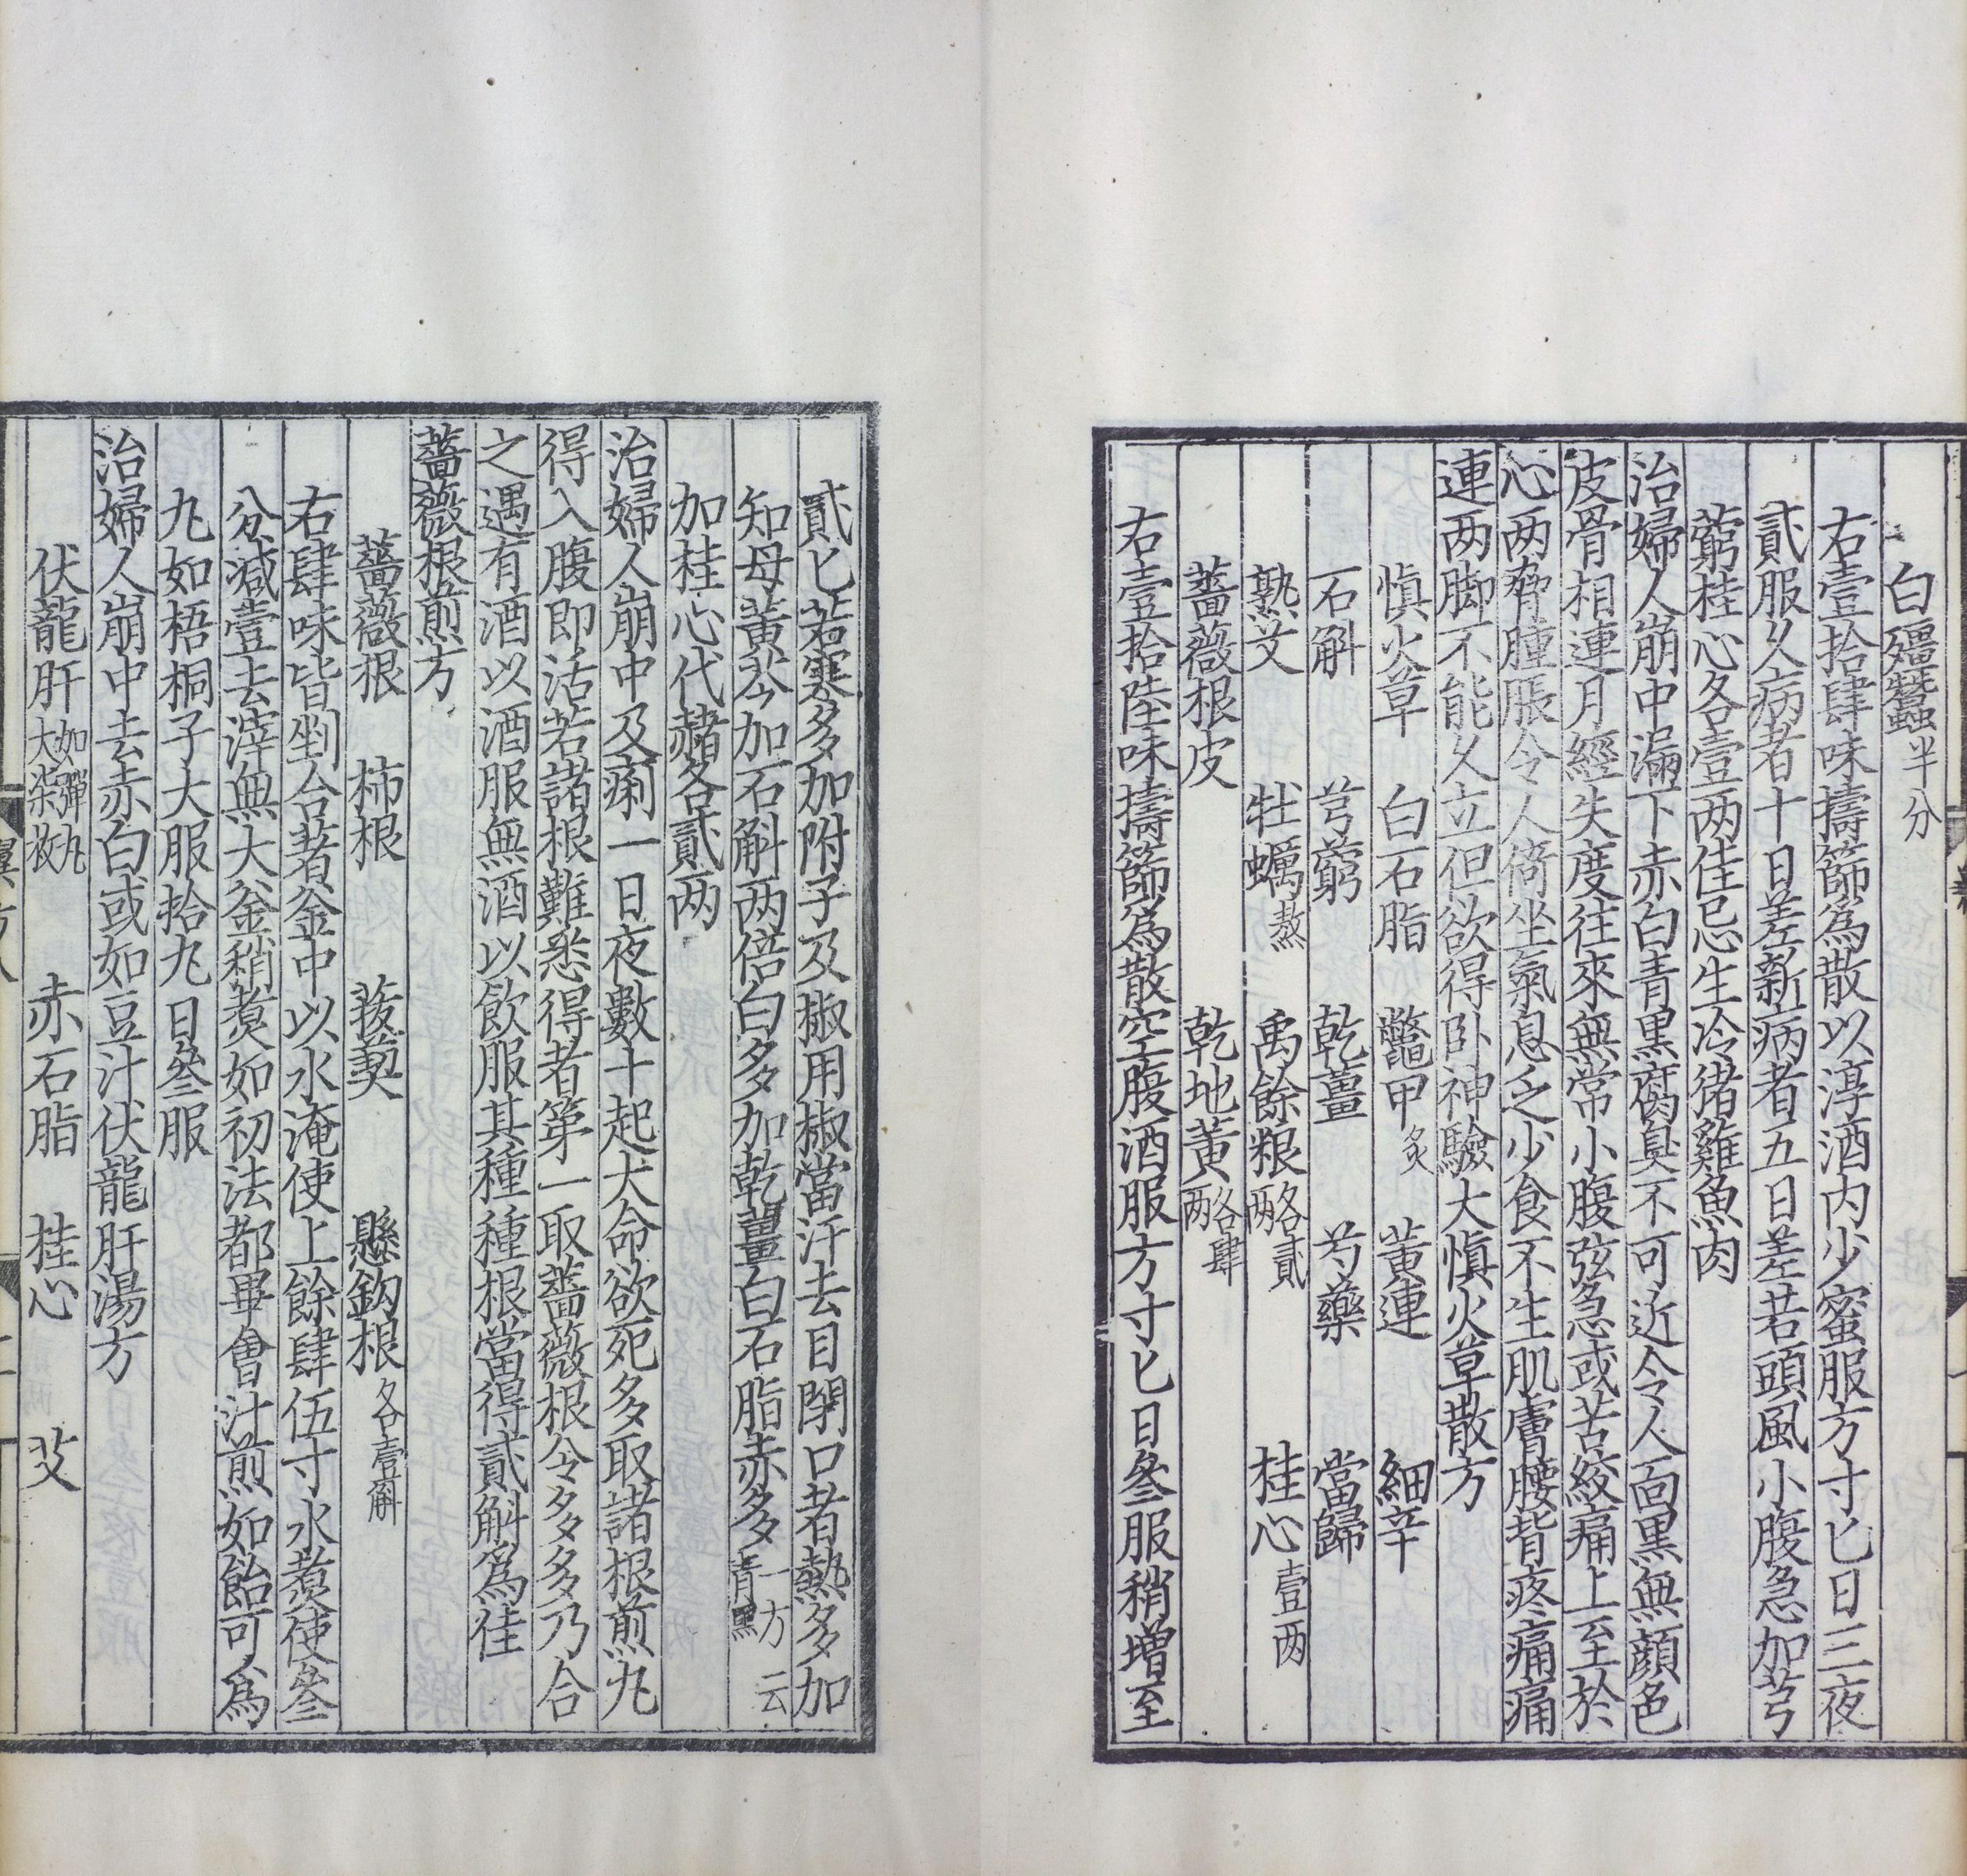 白殭蠶半分
右壹拾肆味擣篩爲散以淳酒内少蜜服方寸匕日三夜
貳服久病者十日差新病者五日差若頭風小腹急加芎
藭桂心各壹两佳忌生冷猪雞魚肉
治婦人崩中漏下赤白青黑腐臭不可近令人面黑無顔色
皮骨相連月經失度往來無常小腹弦急或苦絞痛上至於
心两脅腫脹令人倚坐氣息乏少食不生肌膚腰背疼痛痛
連两脚不能久立但欲得卧神驗大慎火草散方
慎火草　白石脂　鼈甲炙　黃連　細辛
石斛　芎藭　乾薑　芍藥　當歸
熟艾　牡蠣熬　禹餘粮各貳两　桂心壹两
薔薇根皮　乾地黃各肆两
右壹拾陸味擣篩爲散空腹酒服方寸匕日叄服稍增至
貳匕若寒多加附子及椒用椒當汗去目閉口者熱多加
知母黃芩加石斛两倍白多加乾薑白石脂赤多一方云青黑
加桂心代赭各貳两
治婦人崩中及痢一日夜數十起大命欲死多取諸根煎丸
得入腹即活若諸根難悉得者第一取薔薇根令多多乃合
之遇有酒以酒服無酒以飲服其種種根當得貳斛爲佳
薔薇根煎方
薔薇根　柿根　菝葜　懸鈎根各壹斛
右肆味皆剉合著釜中以水淹使上餘肆伍寸水煑使叄
分減壹去滓無大釜稍煑如初法都畢會汁煎如飴可爲
丸如梧桐子大服拾丸日叄服
治婦人崩中去赤白或如豆汁伏龍肝湯方
伏龍肝如彈丸大柒枚　赤石脂　桂心　艾